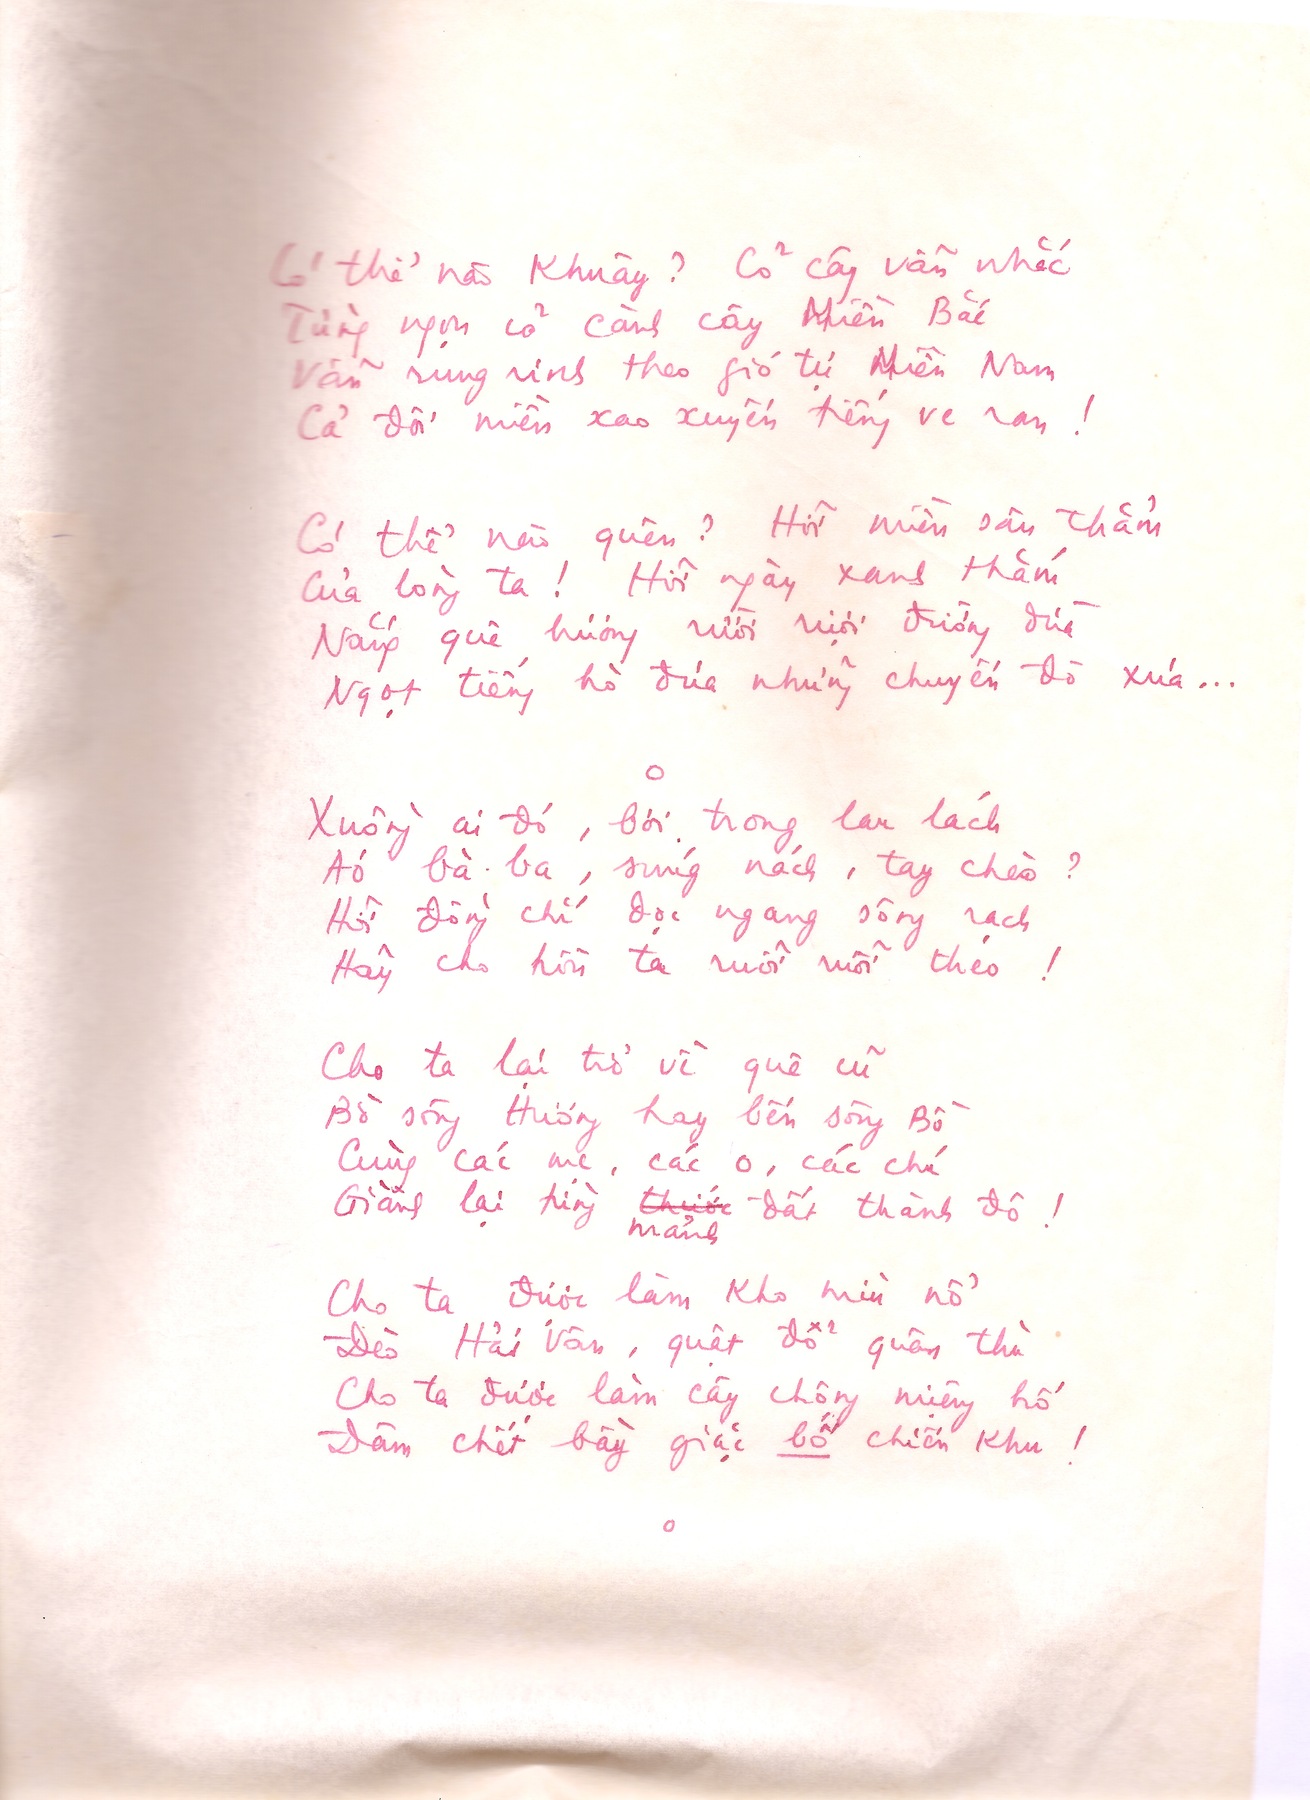 Có thể nào khuây? Cỏ cây vẫn nhắc
Từng ngọn cỏ cành cây Miền Bắc
Vẫn rung rinh theo gió tự Miền Nam
Cả đôi miền xao xuyến tiếng ve ran!
Có thể nào quên? Hỡi miền sâu thẳm
Của lòng ta! Hỡi ngày xanh thắm
Nắng quê hương rười rượi đường dừa
Ngọt tiếng hò đưa những chuyến đò xưa...
o
Xuồng ai đó, bơi trong lau lách
Áo bà ba, súng nách, tay chèo?
Hỡi đồng chí dọc ngang sông rạch
Hãy cho hồn ta ruổi ruổi theo!
Cho ta lại trở về quê cũ
Bờ sông Hương hay bến sông Bồ
Cùng các mẹ, các o, các chú
Giành lại từng thước đất thành đô!
mảnh
Cho ta được làm kho mìn nổ
Đèo Hải Vân, quật đổ quân thù
Cho ta được làm cây chông miệng hố
Đâm chết bầy giặc bố chiến khu!
o